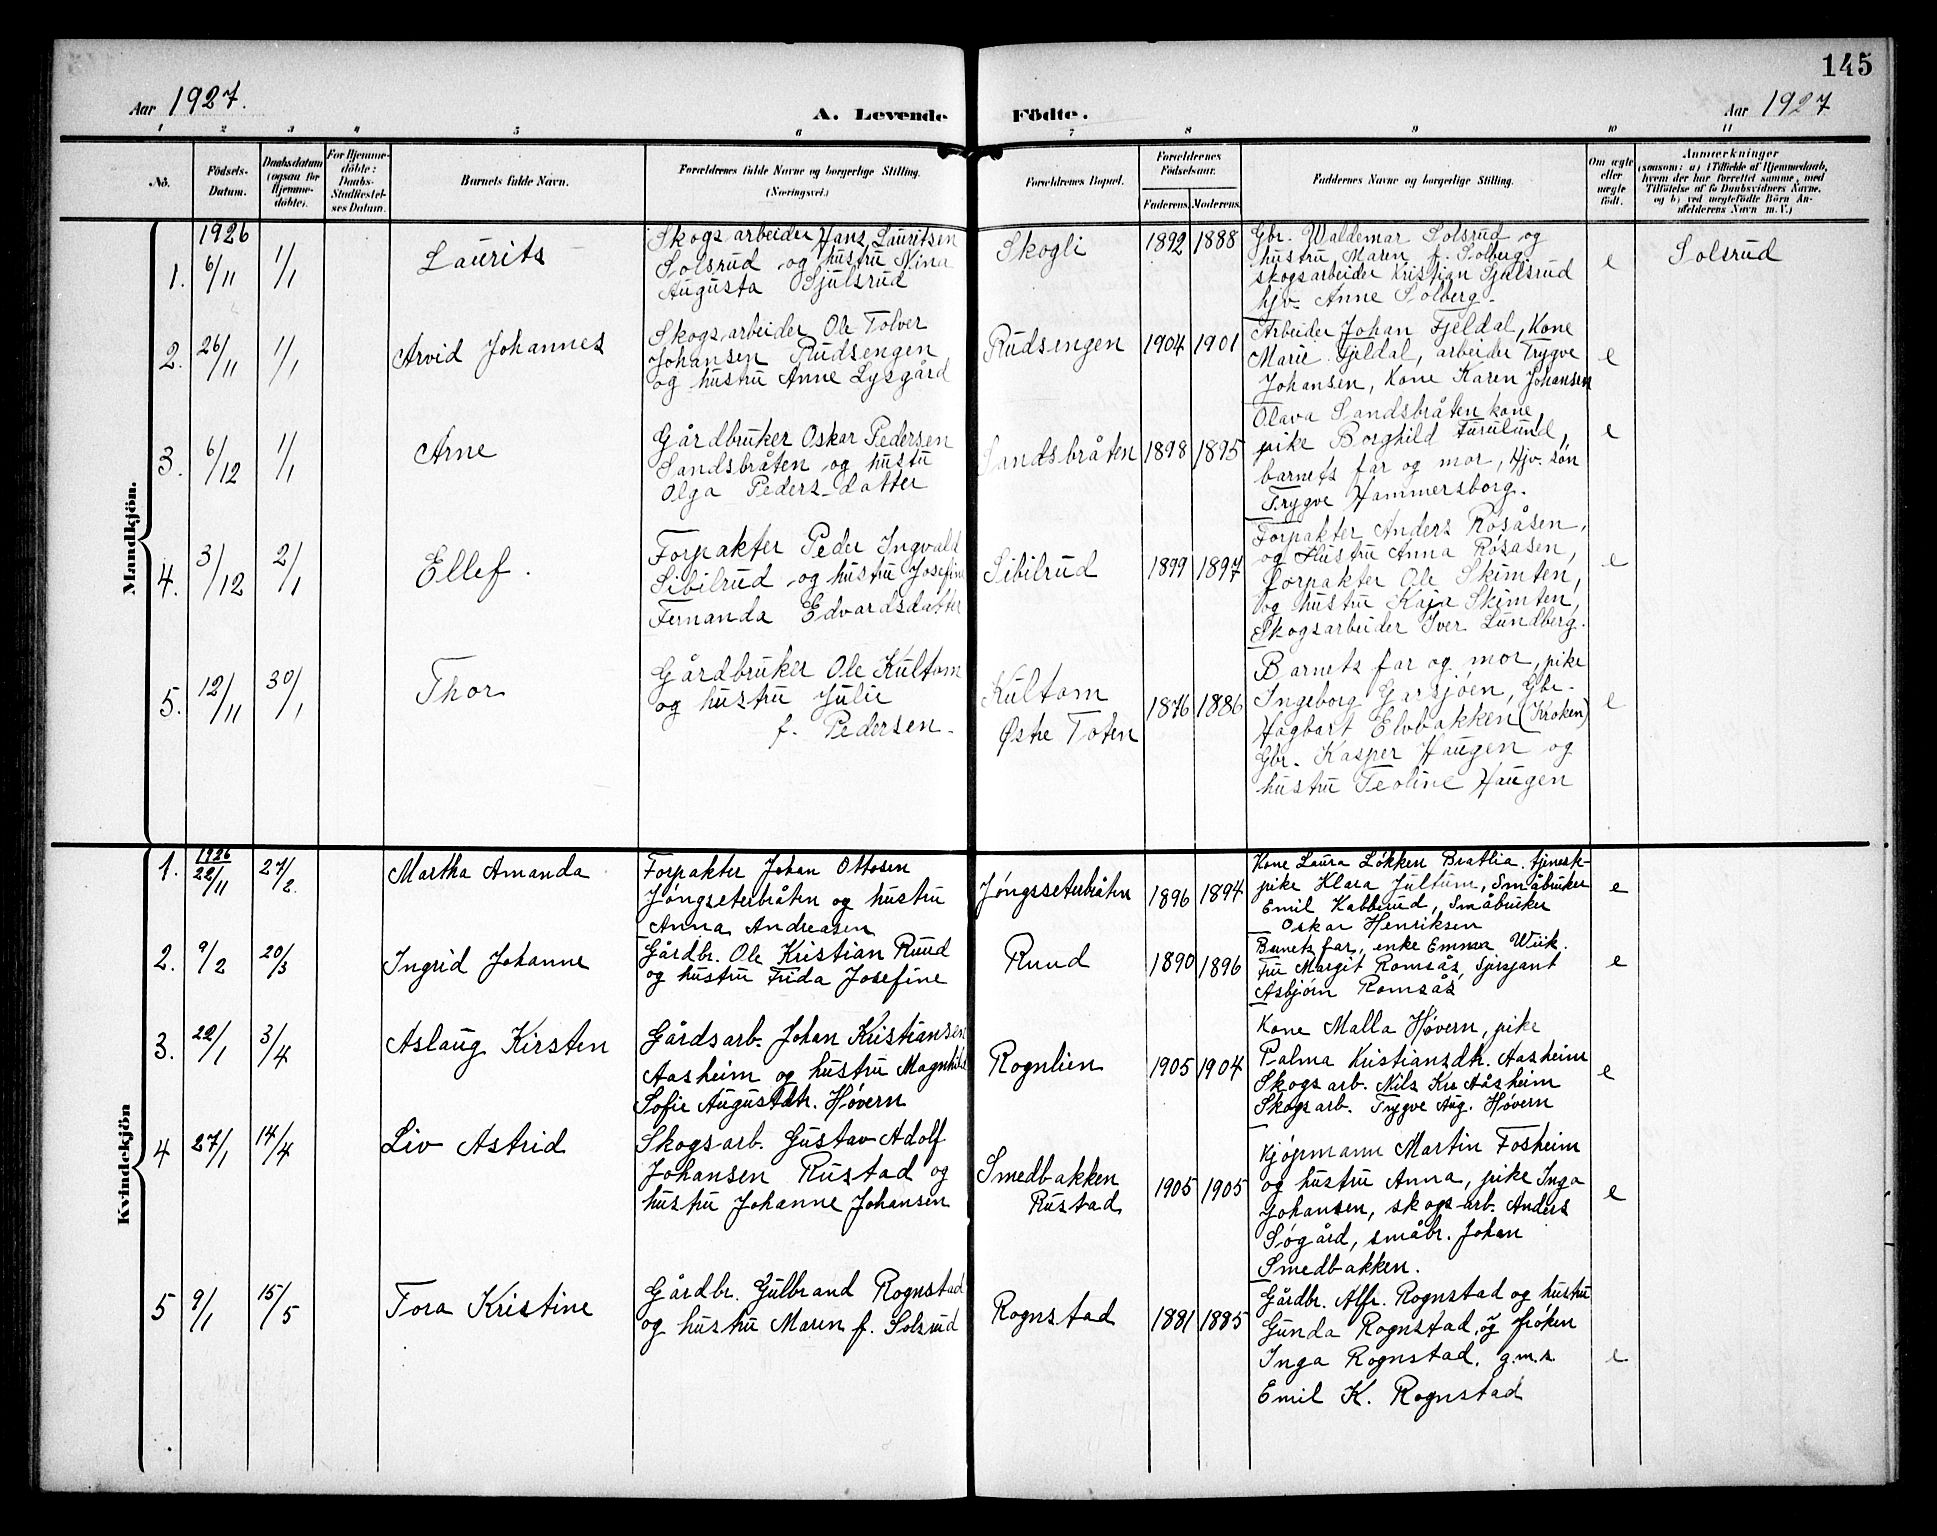 145
Aar 1927.
A. Levende Födte.
Aar 1927
1 2 3 4 5 6 7 8 9 10 11
No.
Födsels-
Datum.
Daabsdatum
(ogsaa for
Hjemme-
döbte).
For Hjemme-
döbte:
Daabs-
Stadfæstel-
ses Datum.
Barnets fulde Navn.
Forældrenes fulde Navne og borgerlige Stilling.
(Næringsvei.)
Forældrenes Bopæl.
Forældrenes
Födselsaar.
Faderens. Moderens.
Faddernes Navne og borgerlige Stilling.
Om ægte
eller
uægte
födt.
Anmærkninger
(saasom: a) i Tilfælde af Hjemmedaab,
hvem der har forrettet samme, med
Tilföielse af to Daabsvidners Navne.
og b) ved uægtefödte Börn An-
melderens Navn m. V.)
Mandkjön.
1926
1. 6/11 1/1
Laurits
Skogsarbeider Hans Lauritsen
Solsrud og hustru Nina
Augusta Gjulsrud
Skogli
1892 1888
Gbr. Waldemar Solsrud og
hustru Maren f. Solberg.
skogsarbeider Kristian Gjulsrud
hjv. Anne Solberg.
e
Solsrud
2. 26/11 1/1
Arvid Johannes
Skogsarbeider Ole Tolver
Johansen Rudsengen
og hustru Anne Lysgård
Rudsengen
1904 1901
Arbeider Johan Fjeldal, Kone
Marie Fjeldal, arbeider Trygve
Johansen, Kone Karen Johansen
e
3. 6/12 1/1
Arne
Gårdbruker Oskar Pedersen
Sandsbråten og hustu
Olga Peders-datter
Sandsbråten
1898 1895
Olava Sandsbråten kone,
pike Borghild Furulund,
barnets far og mor, Hjv. søn
Trygve Hammersborg.
e
4. 3/12 2/1
Ellef.
Forpakter Peder Ingvald
Sibilrud og hustru Josefine
Fernanda Edvardsdatter
Sibilrud
1899 1897
Forpakter Anders Røsåsen,
og Hustru Anna Røsåsen,
Forpakter Ole Skimten,
og hustru Kaja Skimten,
Skogsarbeider Iver Lundberg.
e
5. 12/11 30/1
Thor
Gårdbruker Ole Kultom
og hustru Julie
f. Pedersen.
Kultom
Østre Toten
1876 1886
Barnets far og mor, pike
Ingeborg Garsjøen, Gbr.
Hagbart Elvbakken (Kroken)
Gbr. Kasper Haugen og
hustru Teoline Haugen
e
Kvindekjön
1926
1. 22/11 27/2.
Martha Amanda
Forpakter Johan Ottosen
Jøngseterbråten og hustru
Anna Andreasen
Jøngsseterbråten
1896 1894
Kone Laura Løkken Bratlia. tjenest-
pike Klara Jultum, Småbruker
Emil Kabberud, Småbruker
Oskar Henriksen
e
2. 9/2 20/3
Ingrid Johanne
Gårdbr. Ole Kristian Ruud
og hustru Frida Josefine
Ruud
1890 1896
Barnets far, enke Emma Wiik.
Fru Margit Romsås, Sjersjant
Asbjørn Romsås
e
3. 22/1 3/4
Aslaug Kirsten
Gårdsarb. Johan Kristiansen
Aasheim og hustru Magnhild
Sofie Augustdtr. Høvern
Rognlien
1905 1904
Kone Malla Høvern, pike
Palma Kristiansdtr. Aasheim
Skogsarb. Nils Kr. Aåsheim
Skogsarb. Trygve Aug. Høvern
e
4 27/1 14/4
Liv Astrid
Skogsarb. Gustav Adolf
Johansen Rustad og
hustru Johanne Johansen
Smedbakken
Rustad
1905 1905
Kjøpmann Martin Fosheim
og hustru Anna, pike Inga
Johansen, skogsarb. Anders
Søgård, småbr. Johan
Smedbakken.
e
5 9/1 15/5
Tora Kristine
Gårdbr. Gulbrand Rognstad
og hustru Maren f. Solsrud
Rognstad
1881 1885
Gårdbr. Alfr. Rognstad og hustru
Gunda Rognstad, og frøken
Inga Rognstad. g.m.s.
Emil K. Rognstad
e